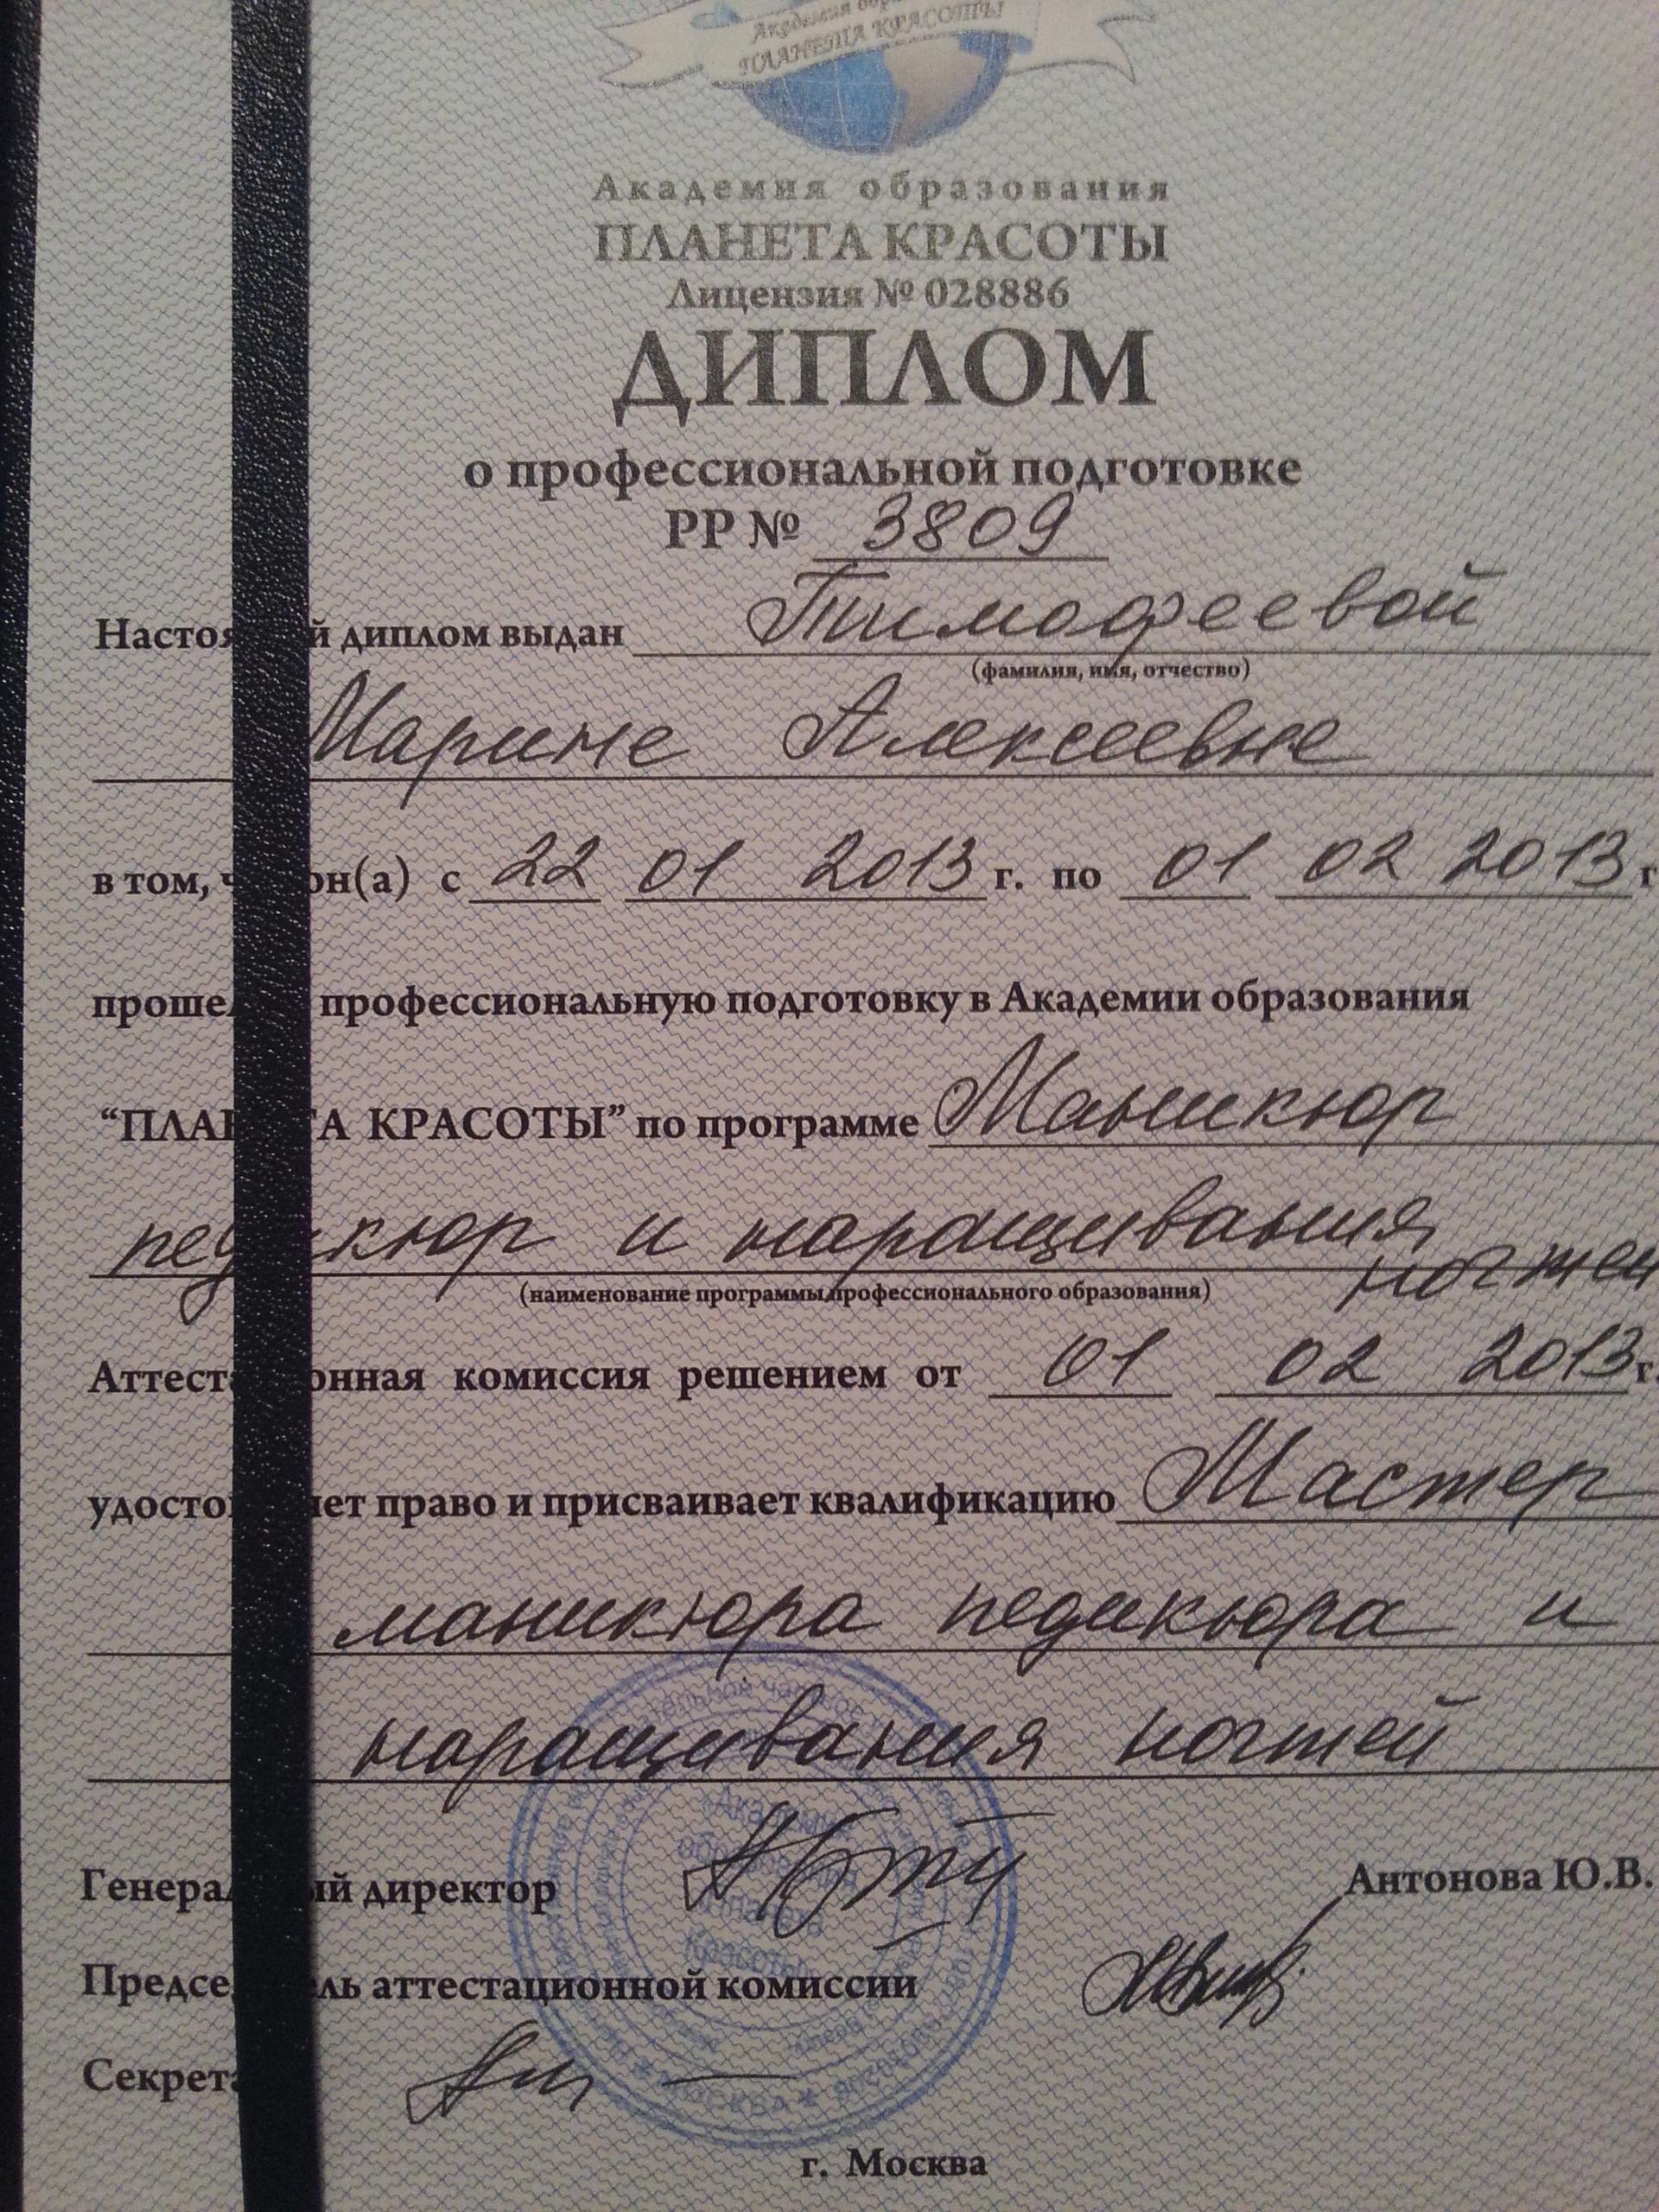 Академия обра
ПЛАНЕТА КРАСОТЫ
Академия образования
ПЛАНЕТА КРАСОТЫ
Лицензия № 028886
ДИПЛОМ
о профессиональной подготовке
РР № 3809
Насто й диплом выдан Тимофеевой
(фамилия, имя, отчество)
Марине Алексеевне
в том, ч он(а) с 22 01 2013 г. по 01 02 2013 г
проше профессиональную подготовку в Академии образования
“ПЛАН ТА КРАСОТЫ” по программе Маникюр
пед кюр и наращивания
ногтей
(наименование программы профессионального образования)
Аттест онная комиссия решением от 01 02 2013 г.
удосто яет право и присваивает квалификацию Мастер
маникюра педикюра и
наращивания ногтей
Генерал ый директор Антонова Ю.В.
Предсе ль аттестационной комиссии
Секрета
Академия
образования
Планета
Красоты
МОСКВА
г. Москва